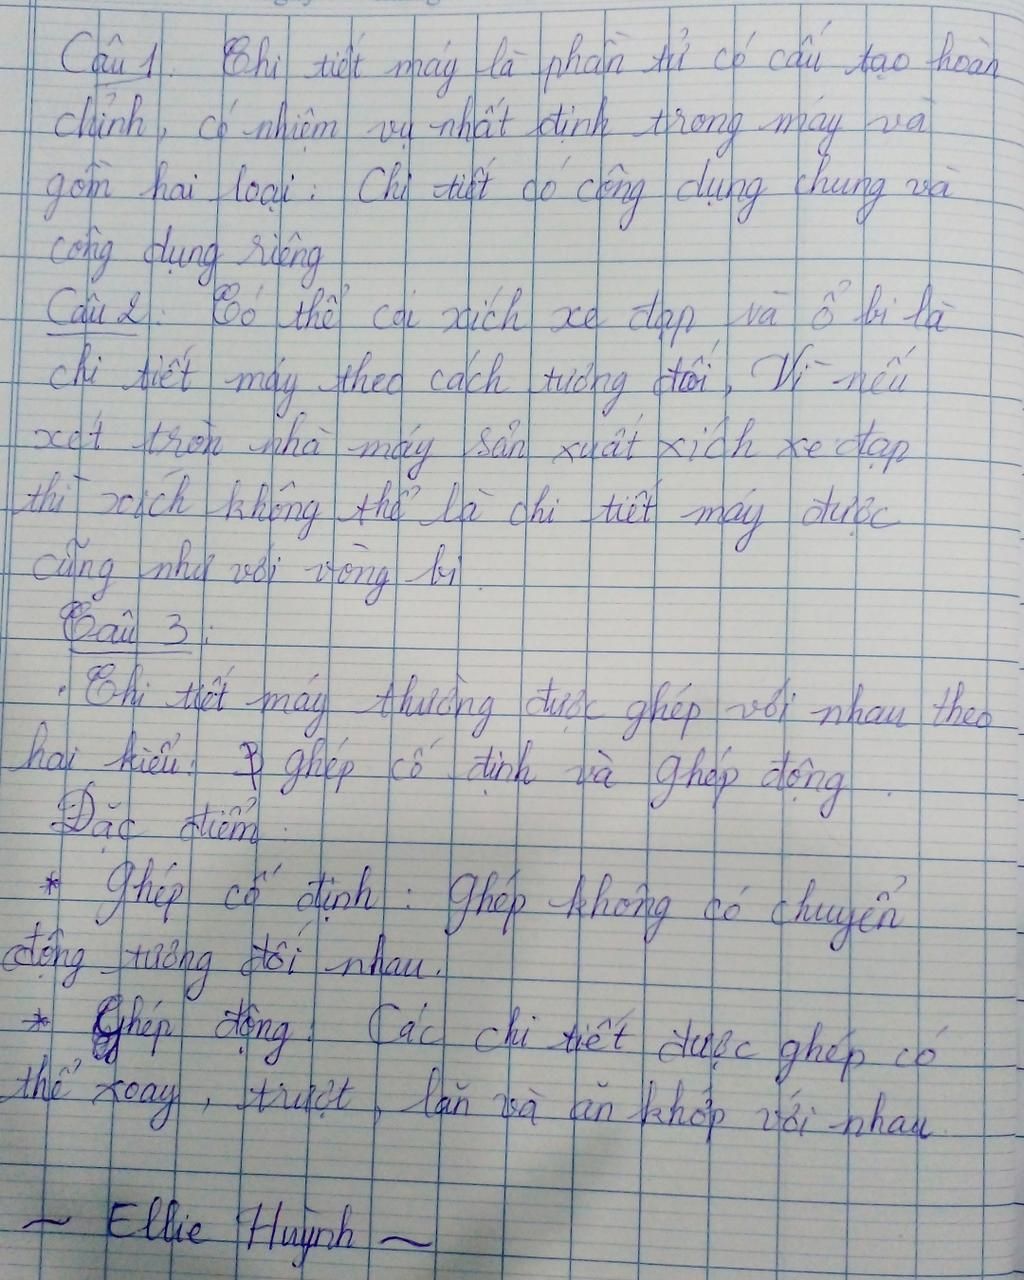 Câu 1. Chi tiết máy là phần tử có cấu tạo hoàn
chỉnh, có nhiệm vụ nhất định trong máy và
gồm hai loại: Chi tiết có công dụng chung và
công dụng riêng
Câu 2: Có thể coi xích xe đạp và ổ bi là
chi tiết máy theo cách tương đối, Vì nếu
xét tron nhà máy sản xuất xích xe đạp
thì xích không thể là chi tiết máy được
cũng như với vòng bi.
Câu 3:
. Chi tiết máy thường được ghép với nhau theo
hai kiểu: ghép cố định và ghép động.
Đặc điểm:
* Ghép cố định: Ghép không có chuyển
động tương đối nhau.
* Ghép động: Các chi tiết được ghép có
thể xoay, trượt, lăn và ăn khớp với nhau.
~ Ellie Huỳnh ~